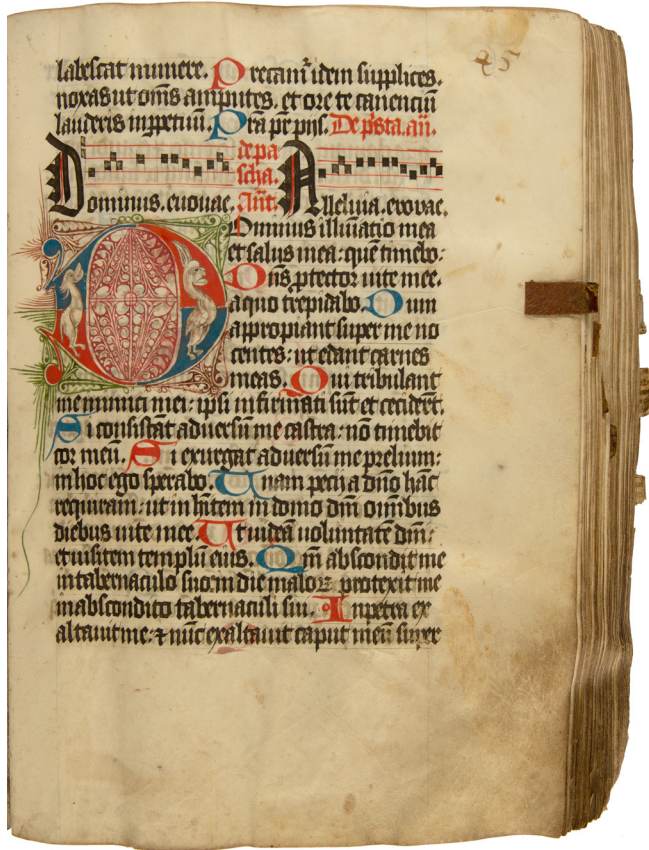 25
labescat munere. Precam̃ idem supplices.
noxas ut om̃s amputes. et ore te canenciū
lauderis inppetuū. Pra pr̃ pijs. De p̃sta. añ.
de pa
scha.
Dominus. evovae. Añt. Alleluia. evovae.
Dominus illuīatio mea
et salus mea: quē timebo:
Dñs ptector uite mee.
a quo trepidabo. Dum
appropiant super me no
centes: ut edant carnes
meas. Qui tribulant
me inimici mei: ipsi infirmati sūt et cecider̃t.
Si consistāt aduersū me castra: nō timebit
cor meū. Si exurgat aduersū me prelium:
in hoc ego sperabo. Unam pecij a dño hāc
requiram: ut inh̃item in domo dñi omībus
diebus uite mee. Ut uideā uoluntatē dñi:
et uisitem templū eius. Qm̃ abscondit me
in tabernaculo suo: in die maloꝝ protexit me
in abscondito tabernaculi sui. In petra ex
altauit me: ⁊ nūc exaltauit caput meū super